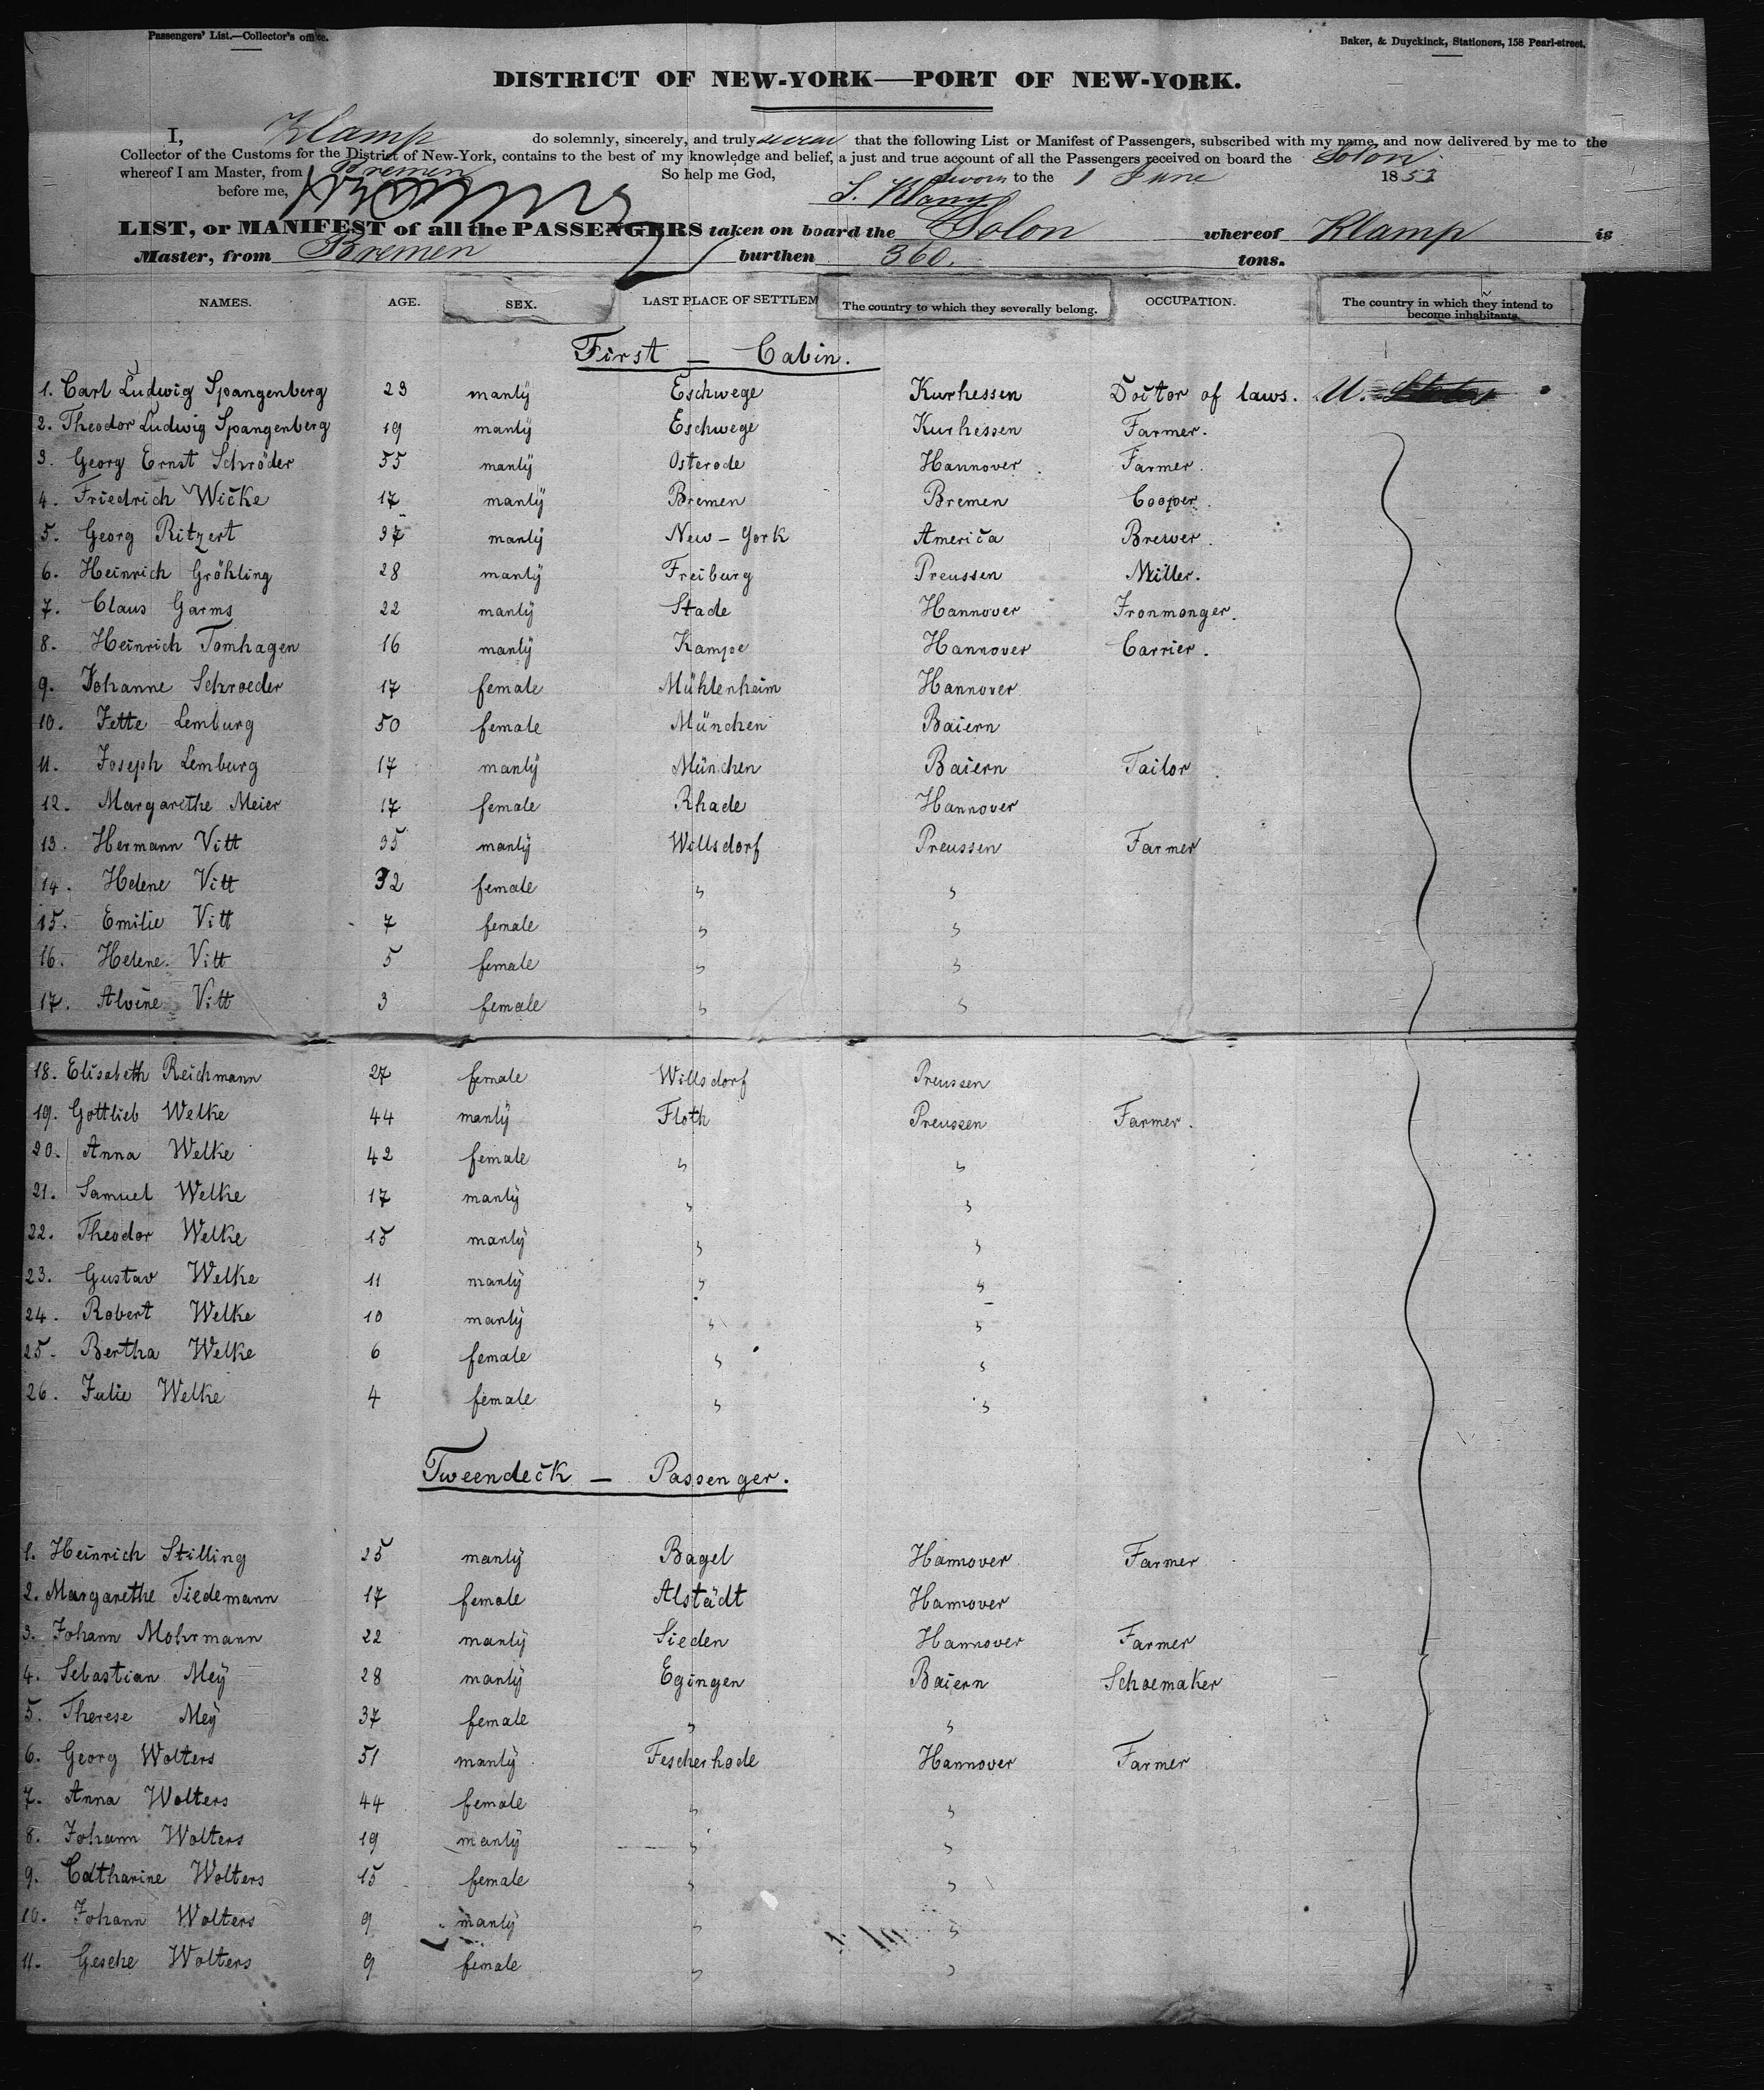 Passengers' List.—Collector's office.
Baker, & Duyckinck, Stationers, 158 Pearl-street.
DISTRICT OF NEW-YORK—PORT OF NEW-YORK.
I, Klamp do solemnly, sincerely, and truly swear that the following List or Manifest of Passengers, subscribed with my name, and now delivered by me to the
Collector of the Customs for the District of New-York, contains to the best of my knowledge and belief, a just and true account of all the Passengers received on board the Solon
whereof I am Master, from Bremen So help me God, Sworn to the 1 June 1853
before me, S. Klamp
LIST, or MANIFEST of all the PASSENGERS taken on board the Solon whereof Klamp is
Master, from Bremen burthen 360. tons.
NAMES. AGE. SEX. LAST PLACE OF SETTLEM The country to which they severally belong. OCCUPATION. The country in which they intend to become inhabitants.
First – Cabin.
1. Carl Ludwig Spangenberg 23 manlÿ Eschwege Kurhessen Doctor of laws. U. States
2. Theodor Ludwig Spangenberg 19 manlÿ Eschwege Kurhessen Farmer.
3. Georg Ernst Schröder 55 manlÿ Osterode Hannover Farmer.
4. Friedrich Wicke 17 manlÿ Bremen Bremen Cooper.
5. Georg Ritzert 37 manlÿ New-York America Brewer.
6. Heinrich Gröhling 28 manlÿ Freiburg Preussen Miller.
7. Claus Garms 22 manlÿ Stade Hannover Ironmonger.
8. Heinrich Tomhagen 16 manlÿ Kampe Hannover Carrier.
9. Johanne Schroeder 17 female Mühlenheim Hannover
10. Jette Lemburg 50 female München Baiern
11. Joseph Lemburg 17 manlÿ München Baiern Tailor
12. Margarethe Meier 17 female Rhade Hannover
13. Hermann Vitt 35 manlÿ Willsdorf Preussen Farmer
14. Helene Vitt 32 female " "
15. Emilie Vitt 7 female " "
16. Helene Vitt 5 female " "
17. Alvine Vitt 3 female " "
18. Elisabeth Reichmann 27 female Willsdorf Preussen
19. Gottlieb Welke 44 manlÿ Floth Preussen Farmer.
20. Anna Welke 42 female " "
21. Samuel Welke 17 manlÿ " "
22. Theodor Welke 15 manlÿ " "
23. Gustav Welke 11 manlÿ " "
24. Robert Welke 10 manlÿ " "
25. Bertha Welke 6 female " "
26. Julie Welke 4 female " "
Tweendeck – Passenger.
1. Heinrich Stilling 25 manlÿ Bagel Hannover Farmer
2. Margarethe Tiedemann 17 female Alstädt Hannover
3. Johann Mohrmann 22 manlÿ Sieden Hannover Farmer
4. Sebastian Meÿ 28 manlÿ Egingen Baiern Schoemaker
5. Therese Meÿ 37 female " "
6. Georg Wolters 51 manlÿ Fescherhode Hannover Farmer
7. Anna Wolters 44 female " "
8. Johann Wolters 19 manlÿ " "
9. Catharine Wolters 15 female " "
10. Johann Wolters 9 manlÿ " "
11. Gesche Wolters 9 female " "